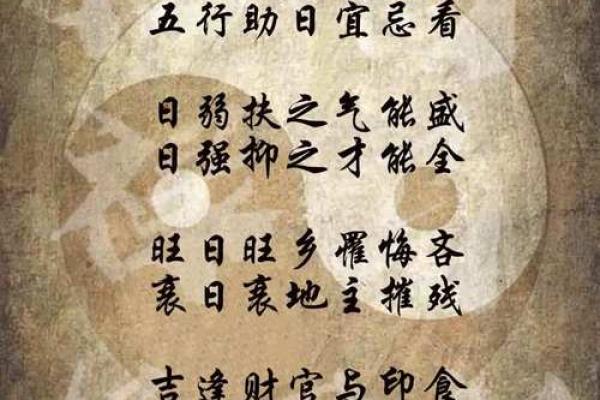 五行助日宜忌看
日弱扶之气能盛
日强抑之才能全
旺日旺乡罹悔吝
衰日衰地主摧残
吉逢财官与印食